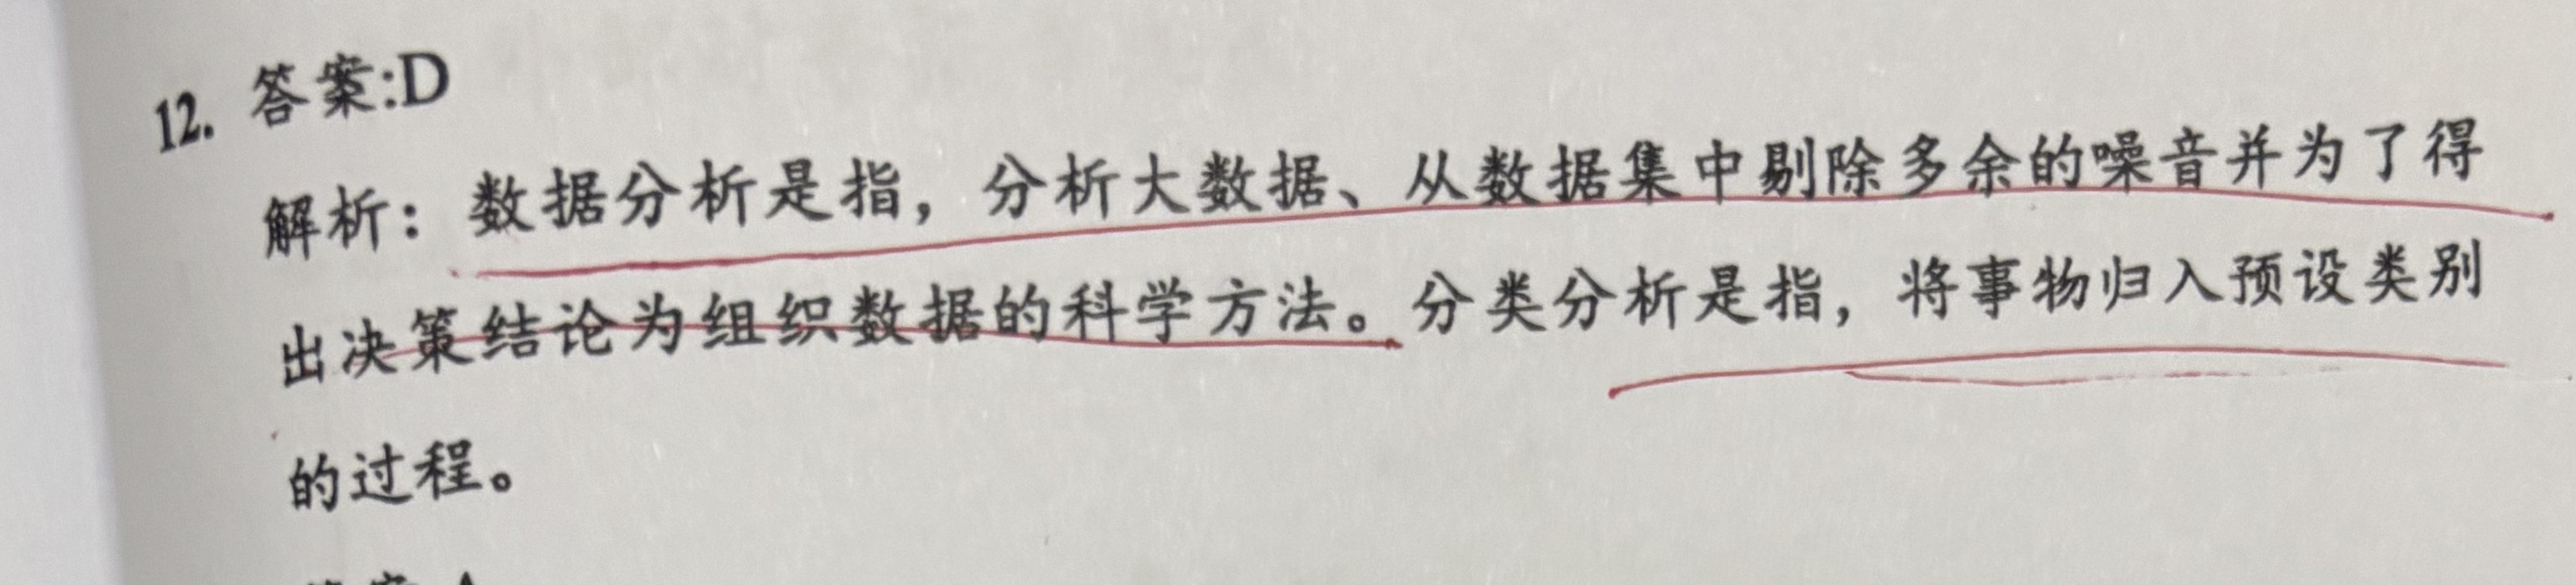 12. 答案:D
解析：数据分析是指，分析大数据、从数据集中剔除多余的噪音并为了得
出决策结论为组织数据的科学方法。分类分析是指，将事物归入预设类别
的过程。